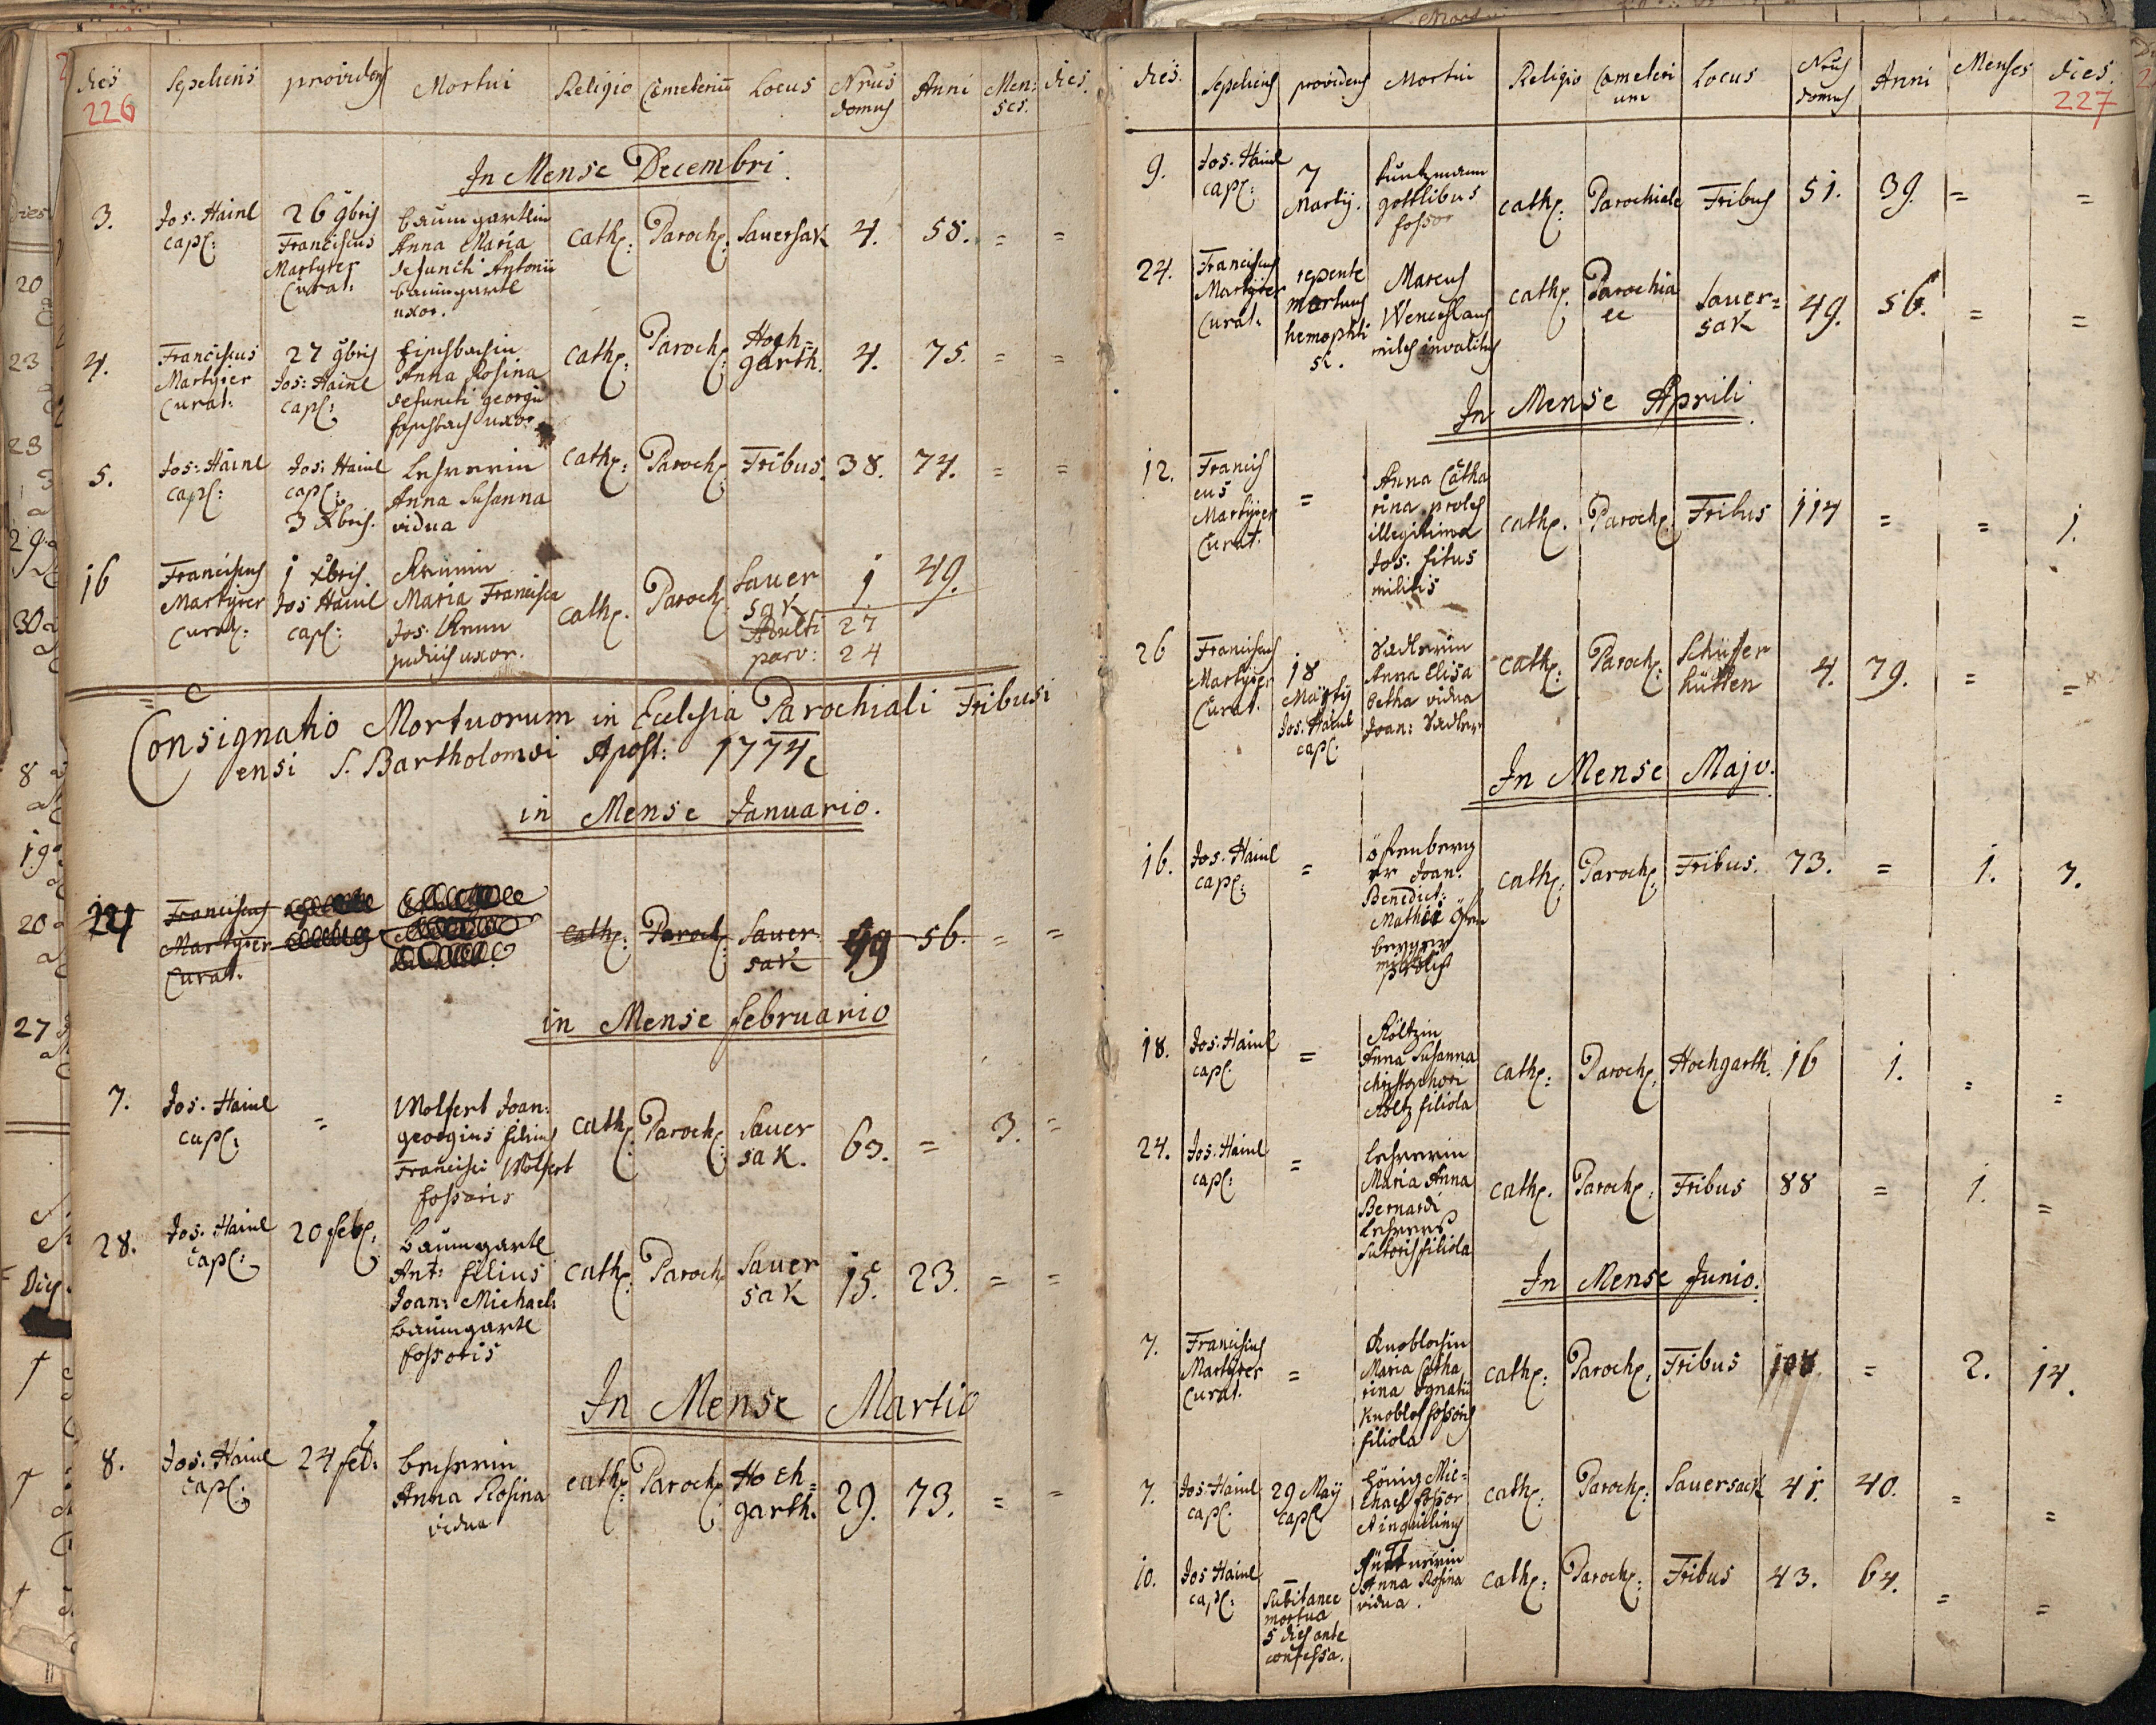 dies Sepeliens providens Mortui Religio Cœmeteriũ Locus Nrus domus Anni Menses. dies.
226
In Mense Decembri.
3. Jos. Hainl capl: 26 9bris Franciscus Martyrer Curat: Baumgartlin Anna Maria defuncti Antonii Baumgartl uxor. Cath: Paroch: Sauersak 4. 58. = =
4. Franciscus Martyrer Curat: 27 9bris Jos: Hainl capl: Anna Rosina defuncti georgii uxor. Cath: Paroch: Hochgarth. 4. 75. = =
5. Jos: Hainl capl: Jos: Hainl capl: 3 Xbris. Lehrerin Anna Susanna vidua Cath: Paroch: Fribus. 38. 74. = =
16 Franciscus Martyrer Curat: 1 Xbris. Jos Hainl capl: Maria Francisca Jos. judicis uxor. Cath: Paroch: Sauersak 1 49.
Adulti 27
parv: 24
Consignatio Mortuorum in Ecclesia Parochiali Fribusiensi S. Bartholomæi Apost: 1774
in Mense Januario.
24 Franciscus Martyrer Curat: cath: Paroch: Sauersak 49 56. = =
in Mense februario
7. Jos. Hainl capl: = Wolfert Joan: georgius filius Francisci Wolfert fossoris Cath: Paroch: Sauersak. 63. = 3. =
28. Jos. Hainl capl: 20 feb: Baumgartl Ant: filius Joan: Michael: Baumgartl fossoris Cath: Paroch: Sauersak 15. 23. = =
In Mense Martio
8. Jos. Hainl capl: 24 feb: Anna Rosina vidua cath: Paroch: Hochgarth. 29. 73. = =
dies. Sepeliens providens Mortui Religio Cœmeterium Locus Nrus domus Anni Menses dies.
227
9. Jos. Hainl capl: 7 Martij. Kuntzmann gottlibus fossor cath: Parochiale Fribus 51. 39. = =
24. Franciscus Martyrer Curat: repente mortuus Marcus Wenceslaus miles invalidus cath: Parochiale Sauersak 49. 56. = =
In Mense Aprili.
12. Franciscus Martyrer Curat. = Anna Catharina proles illegitima Jos. Titus militis cath: Paroch: Fribus 114 = = 1.
26 Franciscus Martyrer Curat. 18 Martij Jos. Hainl capl. Anna Elisabetha vidua Joan: cath: Paroch: Schüferhütten 4. 79. = =
In Mense Majo.
16. Jos. Hainl capl: = Joan: Benedict: cath: Paroch: Fribus. 73. = 1. 7.
18. Jos. Hainl capl. = Röltzin Anna Susanna Christophori Röltz filiola cath: Paroch: Hochgarth. 16 1. = =
24. Jos. Hainl capl: = Lehrerin Maria Anna Bernardi Lehrers sutoris filiola cath: Paroch: Fribus 88 = 1. =
In Mense Junio.
7. Franciscus Martyrer Curat. = Knoblochin Maria Catharina Ignatii Knobloch fossoris filiola cath: Paroch: Fribus 108 = 2. 14.
7. Jos. Hainl capl. 29 May capl König Michael fossor cath: Paroch: Sauersack 41. 40. = =
10. Jos Hainl capl: Subitanee mortua 5 dies ante confessa. Anna Rosina vidua. cath: Paroch: Fribus 43. 64. = =